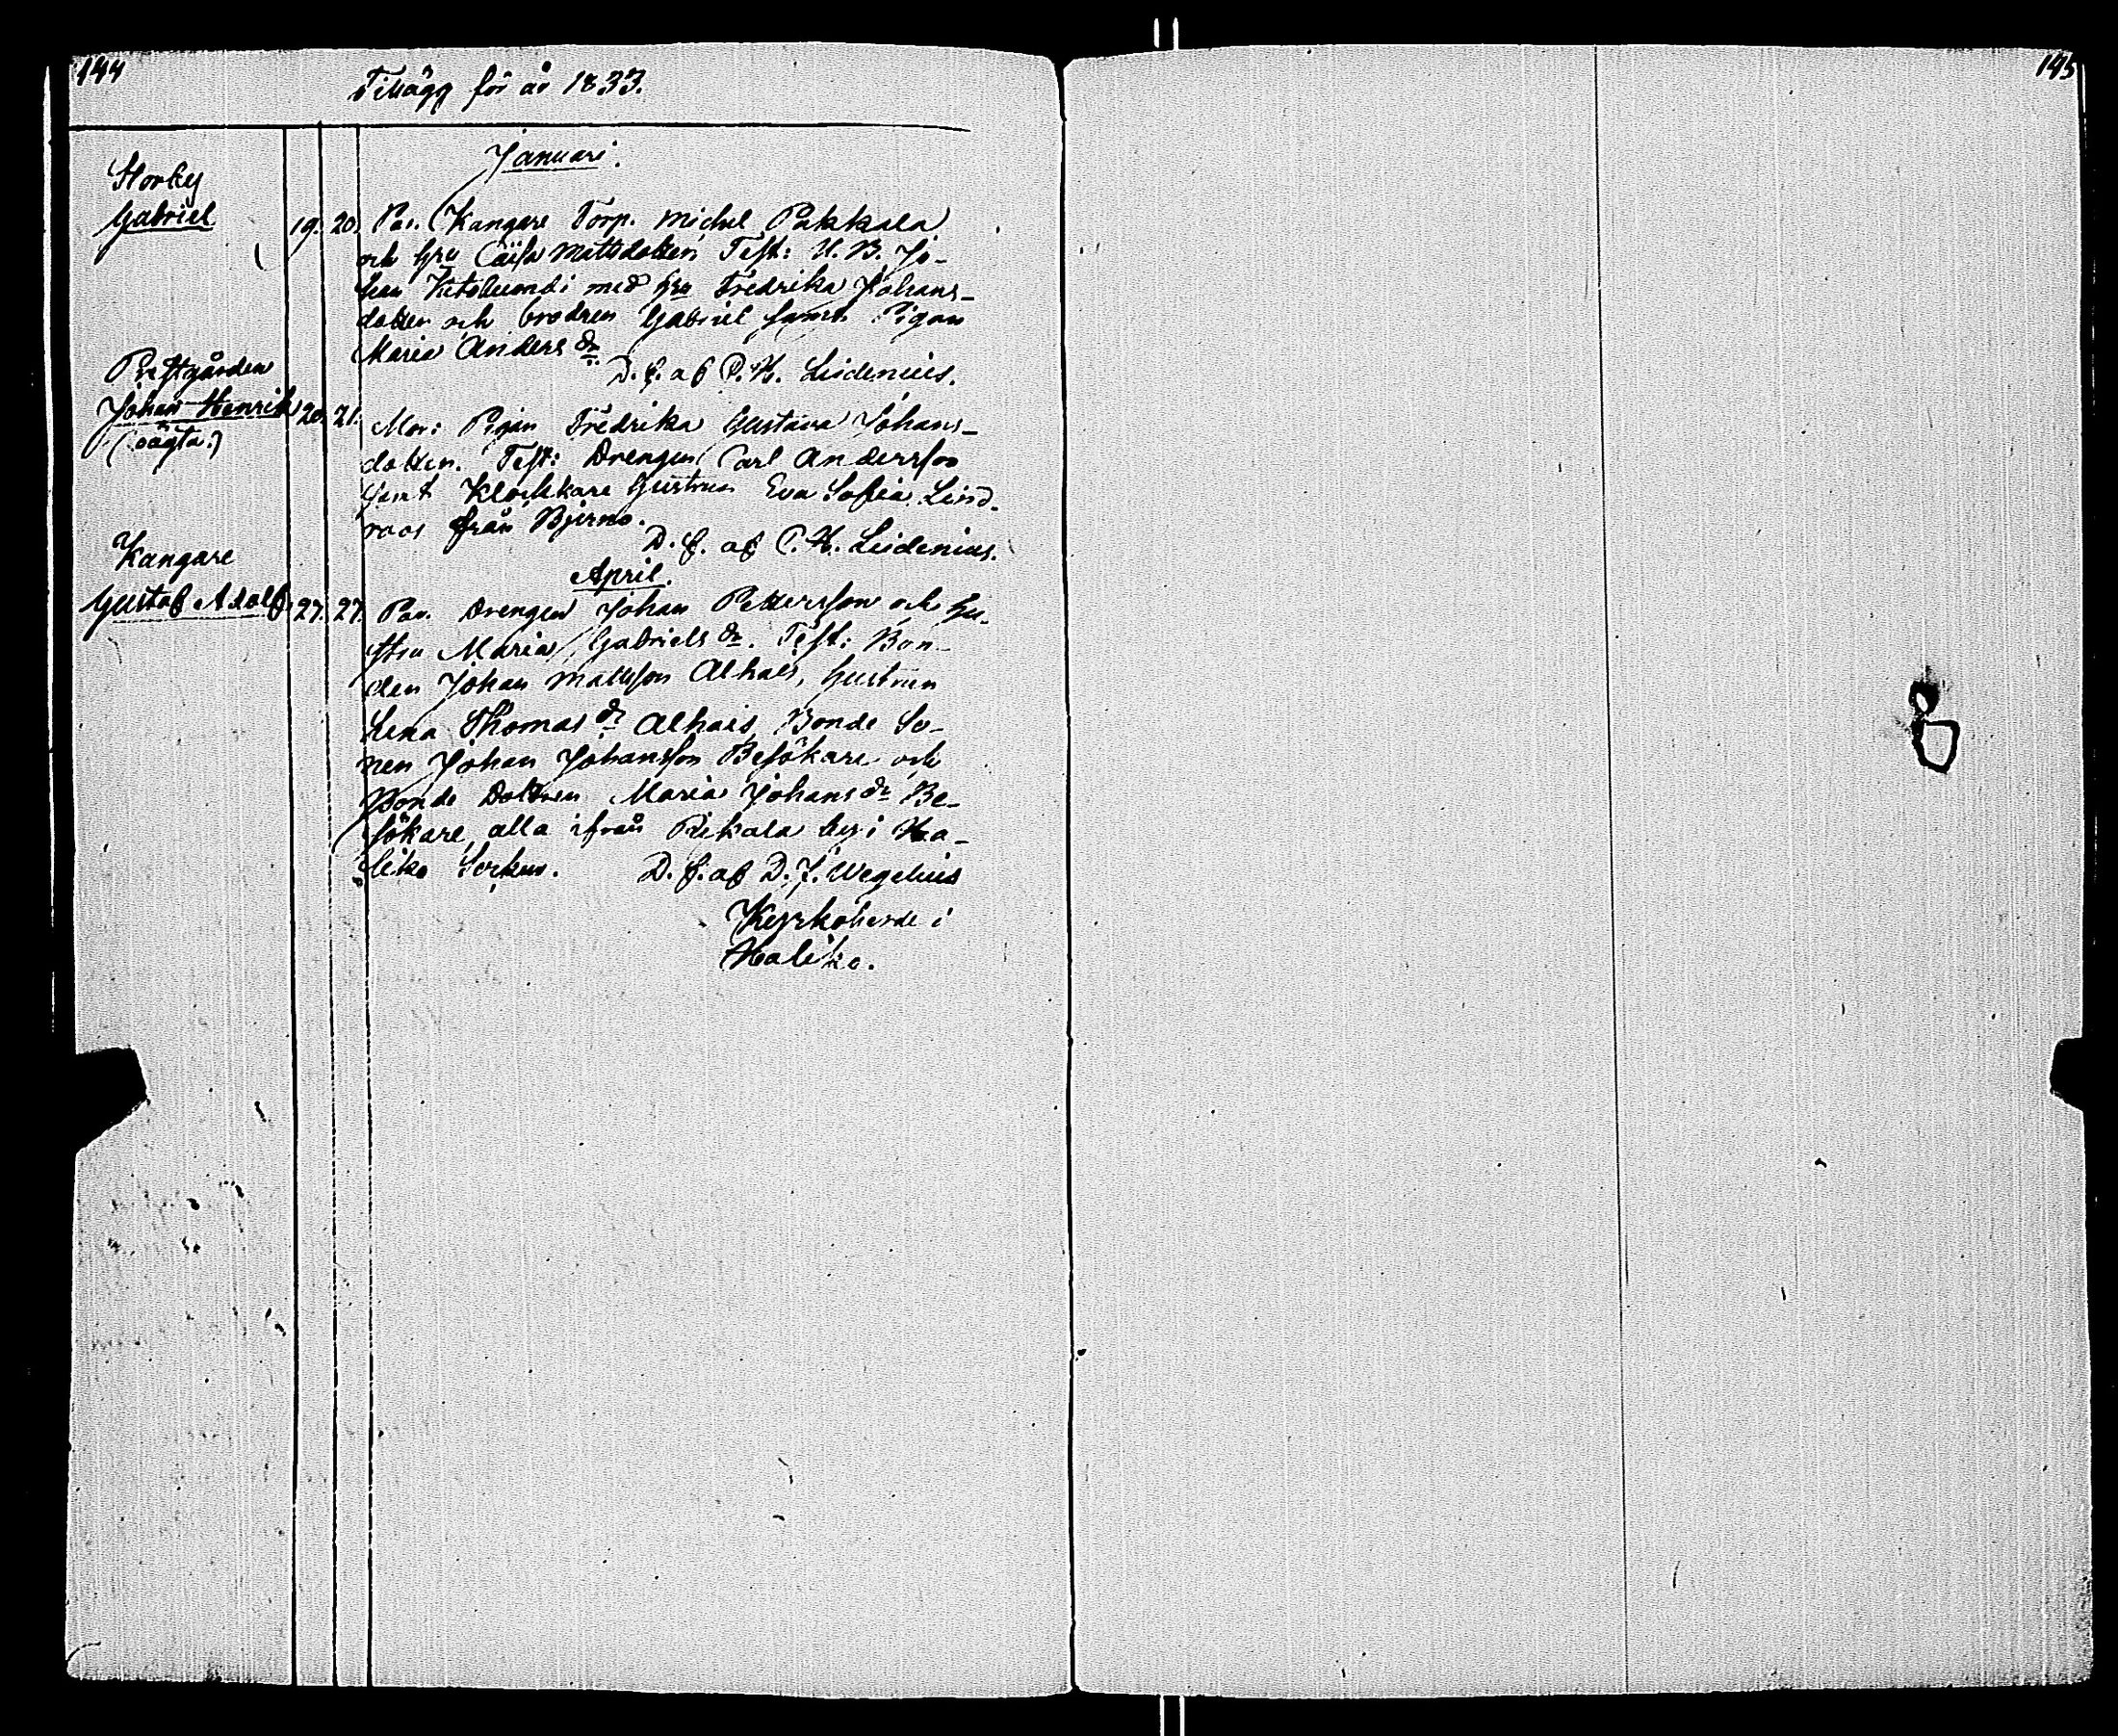 144
145
Tillägg för år 1833.
Januari.
Storby
Gabriel 19. 20. Par. Kangare Torp. Michel Pakkala
och hru Caisa Mattsdotter, Test: U. B. Jo-
han med hru Fredrika Johans-
dotter och brodren Gabriel samt Pigan
Maria Anders dr
D. f. af P. H. Lidenius.
Prestgården
Johan Henrik 20. 21. Mor: Pigan Fredrika Gustava Johans-
(oägta.)
dotter. Test: Drengen Carl Andersson
samt Klockkare hustrun Eva Sofia Lind-
roos från Bjerno.
D. f. af P. H. Lidenius.
April.
Kangare
Gustaf Adolf 27. 27. Par. Drengen Johan Pettersson och hu-
stru Maria Gabriels dr. Test: Bon-
den Johan Mattsson Alhais, hustrun
Lena Thomas dr Alhais, Bonde So-
nen Johan Johansson Besökare och
Bonde Dottren Maria Johans dr Be-
sökare, alla ifrån Pikala by i Ha-
liko Sockn. D. f. af D. J. Wegelius
Kyrkoherde i
Haliko.